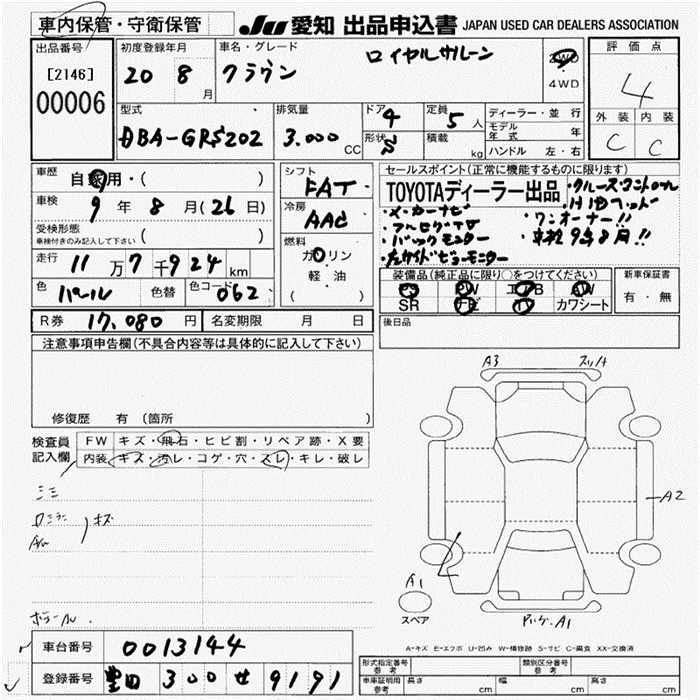 車内保管・守衛保管
JU 愛知 出品申込書 JAPAN USED CAR DEALERS ASSOCIATION
出品番号
[2146]
00006
初度登録年月
20 8月
車名・グレード
クラウン ロイヤルサルーン
2WD
・
4WD
評価点
4
外装 内装
C C
型式
DBA-GRS202
排気量
3.000 CC
ドア 4
形状 S
定員 5人
積載 kg
ディーラー・並行
モデル年式 年
ハンドル 左・右
車歴
自家用・( )
車検
9年8月(26日)
受検形態
車検付きのみ記入して下さい ( )
走行
11万7千924km
色 パール 色替 色コード 062
シフト
FAT
冷房
AAC
燃料
ガソリン
軽・油
( )
セールスポイント(正常に機能するものに限ります)
TOYOTAディーラー出品
・クルーズコントロール
・メーカーナビ
・フルセグTV ・ワンオーナー!!
・バックモニター ・車検9年8月!!
・サイドビューモニター
装備品(純正品に限り○をつけてください)
PS PW エアB AW
SR ナビ TV カワシート
新車保証書
有・無
R券 17.080円 名変期限 月 日
後日品
注意事項申告欄(不具合内容等は具体的に記入して下さい)
修復歴 有 (箇所 )
検査員
記入欄
FW キズ・飛石・ヒビ割・リペア跡・X要
内装 キズ・汚レ・コゲ・穴・スレ・キレ・破レ
キズ
A3
A2
A1
スペア
A1
A-キズ E-エクボ U-凹み W-補修跡 S-サビ C-腐食 XX-交換済
車台番号 0013144
登録番号 豊田 300 せ 9191
形式指定番号
参考
類別区分番号
参考
車庫証明用
参考
長さ cm 幅 cm 高さ cm